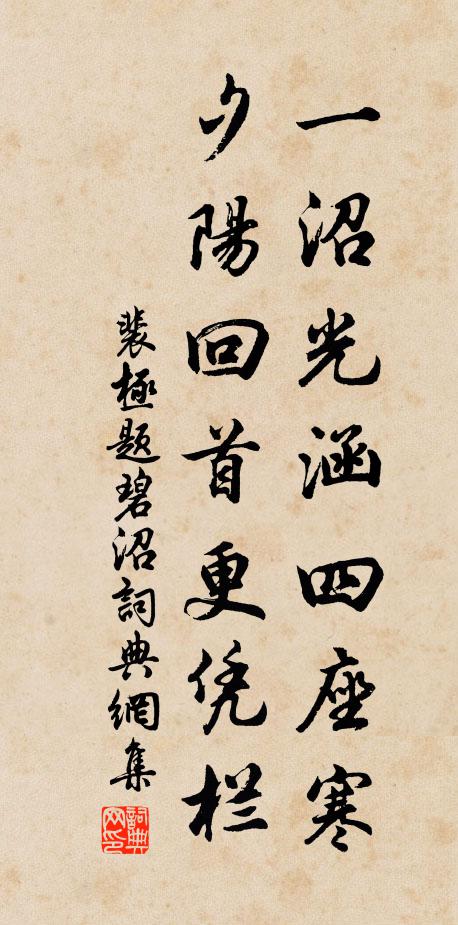 一沼光涵四座寒
夕陽回首更凭栏
裴極题碧沼詞典網集
詞典网印